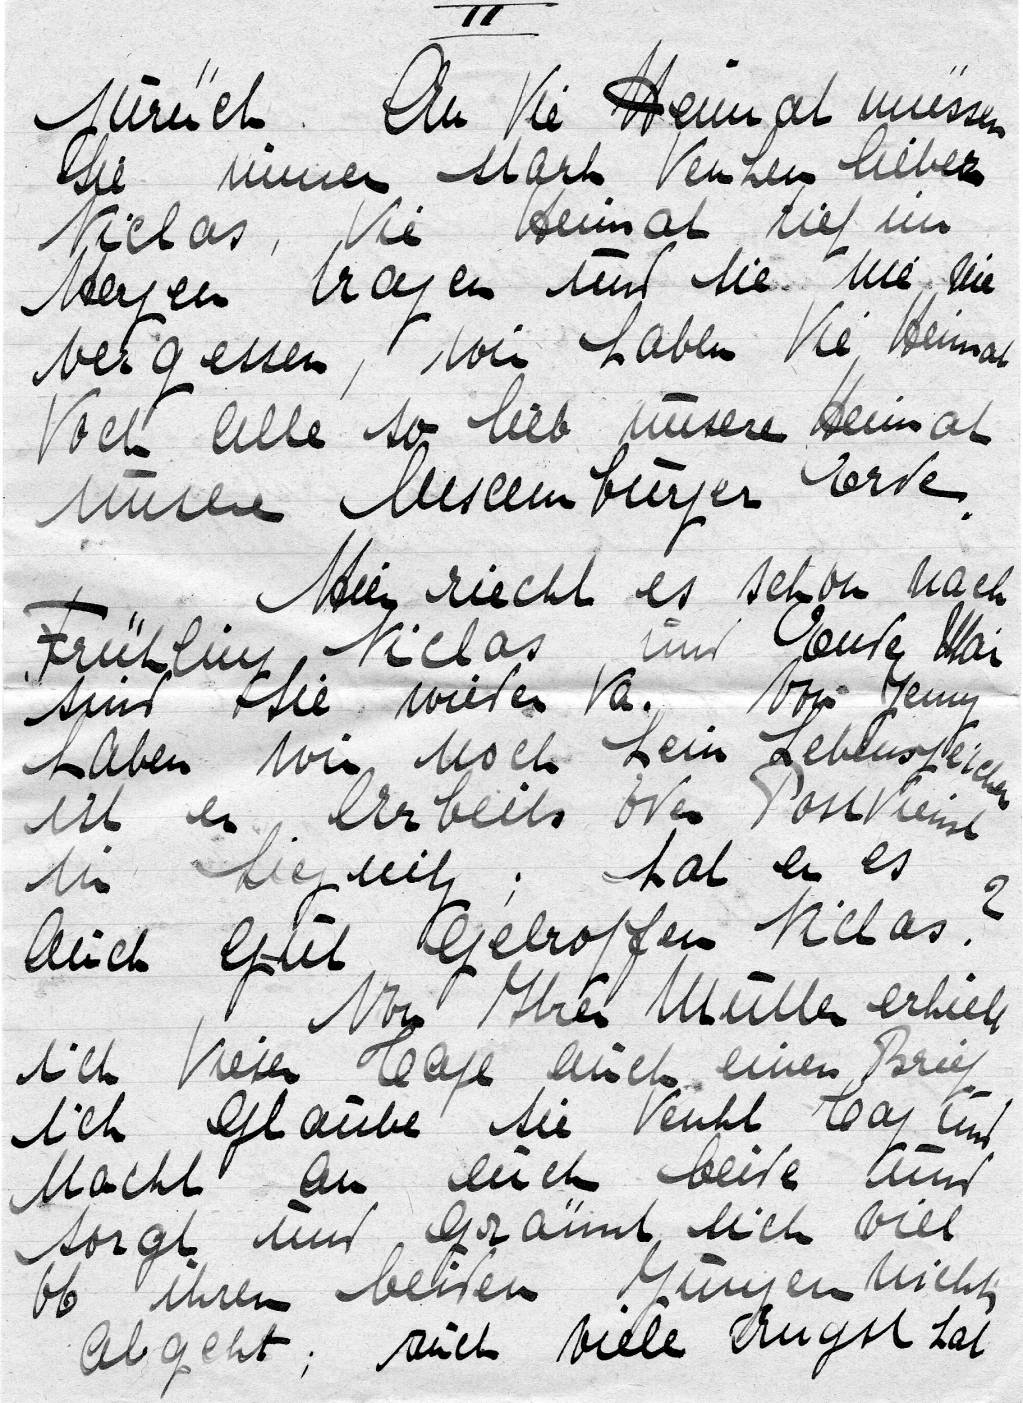 II
zurück. An die Heimat müssen
Sie immer stark denken lieber
Niclas, die Heimat tief im
Herzen tragen und sie nie nie
vergessen, wir haben die Heimat
doch alle so lieb unsere Heimat
unsere Luxemburger Erde.
Hier riecht es schon nach
Frühling Niclas und Ende Mai
sind Sie wieder da. Von Jenny
haben wir noch kein Lebenszeichen
ist er Arbeits oder Postdienst
in Liegnitz; hat er es
auch gut getroffen Niclas?
Von Ihrer Mutter erhielt
ich dieser Tage auch einen Brief
ich glaube sie denkt Tag und
Nacht an euch beide und
sorgt und grämt sich viel
ob ihren beiden Jungen nichts
abgeht; auch viele Angst hat